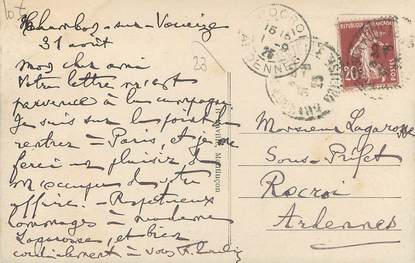 Chambon-sur-Voueize
31 août
Mon cher ami
Votre lettre m'est
parvenue à la campagne.
Je suis sur le point de
rentrer à Paris, et je me
ferai un plaisir de
m'occuper de votre
affaire. Respectueux
hommages à Madame
Lagarosse, et bien
cordialement à vous
23
Montluçon
ROCROI
ARDENNES
20
POSTES
Monsieur Lagarosse
Sous-Préfet
Rocroi
Ardennes